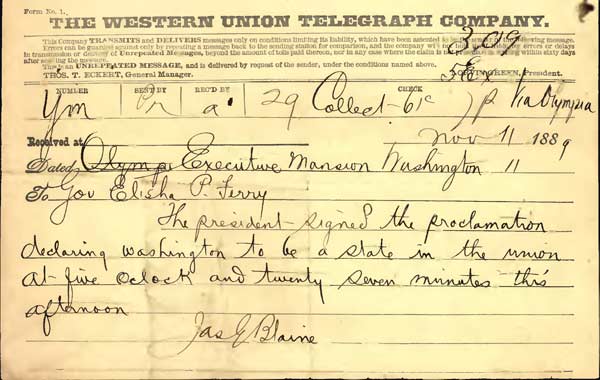 Form No. 1.
THE WESTERN UNION TELEGRAPH COMPANY.
This Company TRANSMITS and DELIVERS messages only on conditions limiting its liability, which have been assented to by the sender of the following message.
Errors can be guarded against only by repeating a message back to the sending station for comparison, and the company will not hold itself liable for errors or delays
in transmission or delivery of Unrepeated Messages, beyond the amount of tolls paid thereon, nor in any case where the claim is not presented in writing within sixty days
after sending the message.
This is an UNREPEATED MESSAGE, and is delivered by request of the sender, under the conditions named above.
THOS. T. ECKERT, General Manager. NORVIN GREEN, President.
309
NUMBER SENT BY REC'D BY CHECK
Ym a 29 Collect 61c Via Olympia
Received at Nov 11 1889
Dated Executive Mansion Washington 11
To Gov Elisha P. Ferry
The president signed the proclamation
declaring washington to be a state in the union
at five oclock and twenty seven minutes this
afternoon
Jas G Blaine